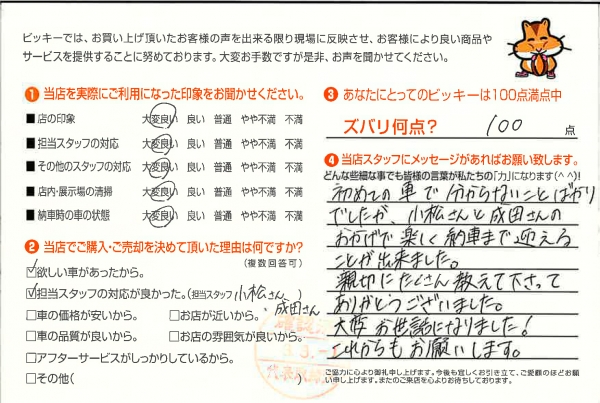 ビッキーでは、お買い上げ頂いたお客様の声を出来る限り現場に反映させ、お客様により良い商品や
サービスを提供することに努めております。大変お手数ですが是非、お声を聞かせてください。
❶ 当店を実際にご利用になった印象をお聞かせください。
■ 店の印象 大変良い 良い 普通 やや不満 不満
■ 担当スタッフの対応 大変良い 良い 普通 やや不満 不満
■ その他のスタッフの対応 大変良い 良い 普通 やや不満 不満
■ 店内・展示場の清掃 大変良い 良い 普通 やや不満 不満
■ 納車時の車の状態 大変良い 良い 普通 やや不満 不満
❷ 当店でご購入・ご売却を決めて頂いた理由は何ですか?
(複数回答可)
☑欲しい車があったから。
☑担当スタッフの対応が良かった。(担当スタッフ 小松さん )
・成田さん
□車の価格が安いから。 □お店が近いから。
□車の品質が良いから。 □お店の雰囲気が良いから。
□アフターサービスがしっかりしているから。
□その他( )
❸ あなたにとってのビッキーは100点満点中
ズバリ何点? 100 点
❹ 当店スタッフにメッセージがあればお願い致します。
どんな些細な事でも皆様の言葉が私たちの「力」になります(^^)!
初めての車で分からないことばかり
でしたが、小松さんと成田さんの
おかげで楽しく納車まで迎える
ことが出来ました。
親切にたくさん教えて下さって
ありがとうございました。
大変お世話になりました!
これからもお願いします。
ご協力に心より御礼申し上げます。今後も宜しくお引き立て、ご愛顧のほどお願
い申し上げます。またのご来店を心よりお待ちしております。